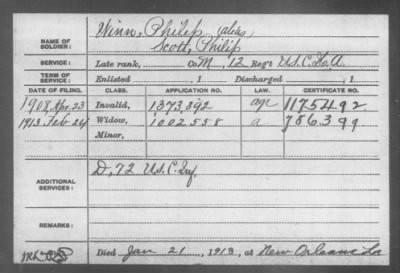 NAME OF SOLDIER: Winn, Philip (alias)
Scott, Philip
SERVICE: Late rank, Co. M, 12 Reg't U.S.C.H.A.
TERM OF SERVICE: Enlisted , 1 Discharged , 1
DATE OF FILING. CLASS. APPLICATION NO. LAW. CERTIFICATE NO.
1908, Apr. 23 Invalid, 1373,892 age 1175492
1913, Feb 24 Widow, 1002558 a 786399
Minor,
ADDITIONAL SERVICES: D, 72 U.S.C. Inf.
REMARKS:
Died Jan 21, 1913, at New Orleans La